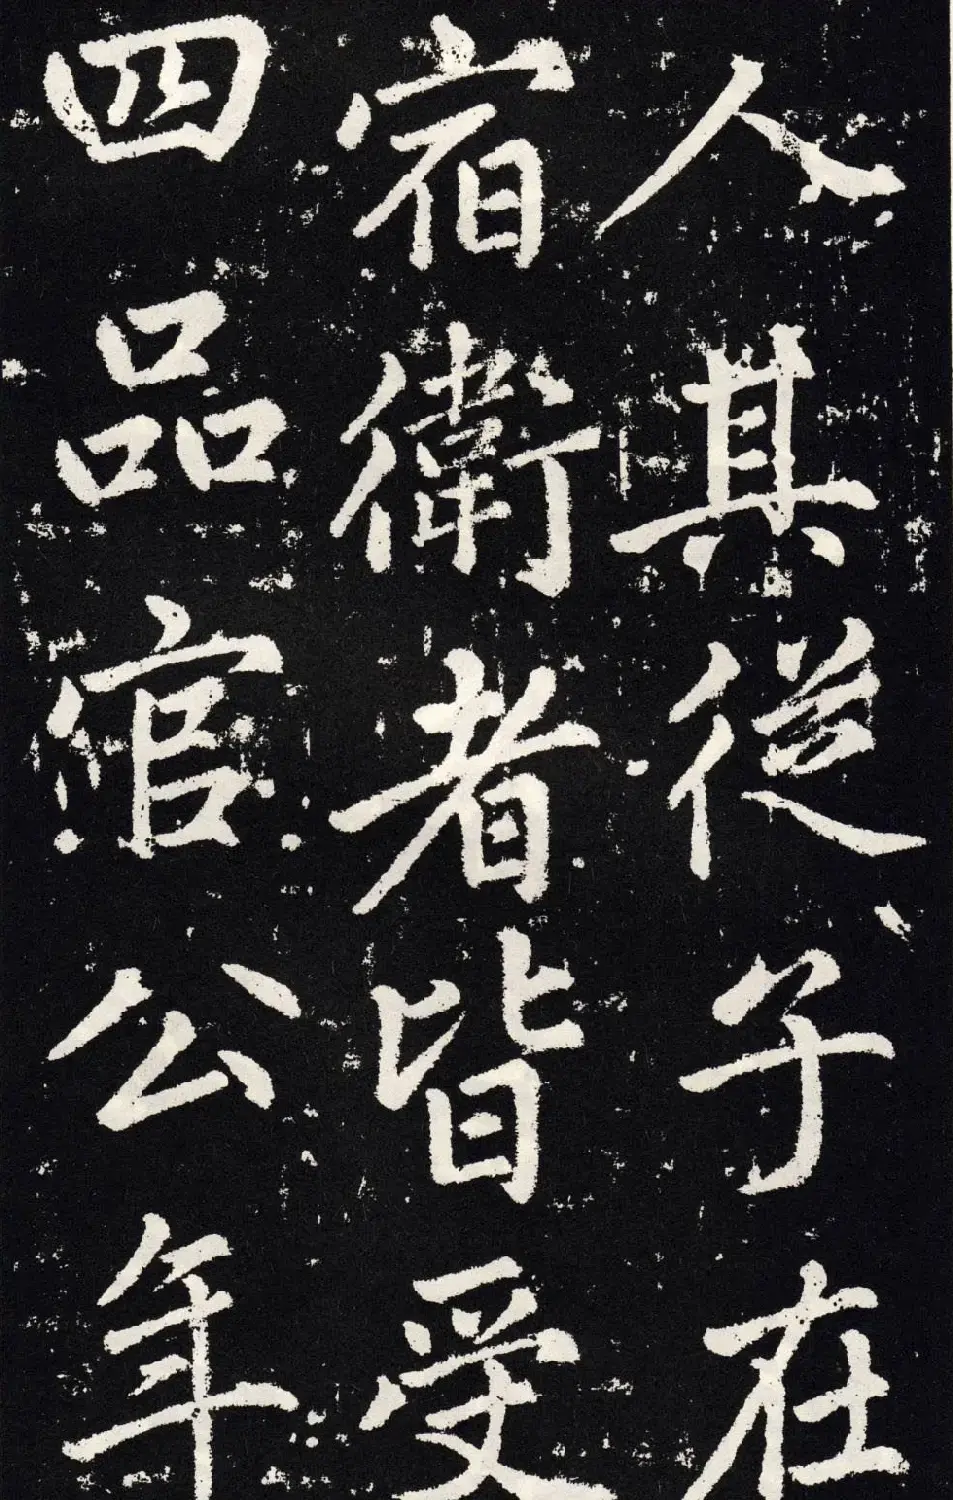 人其從子在
宿衛者皆受
四品官公年